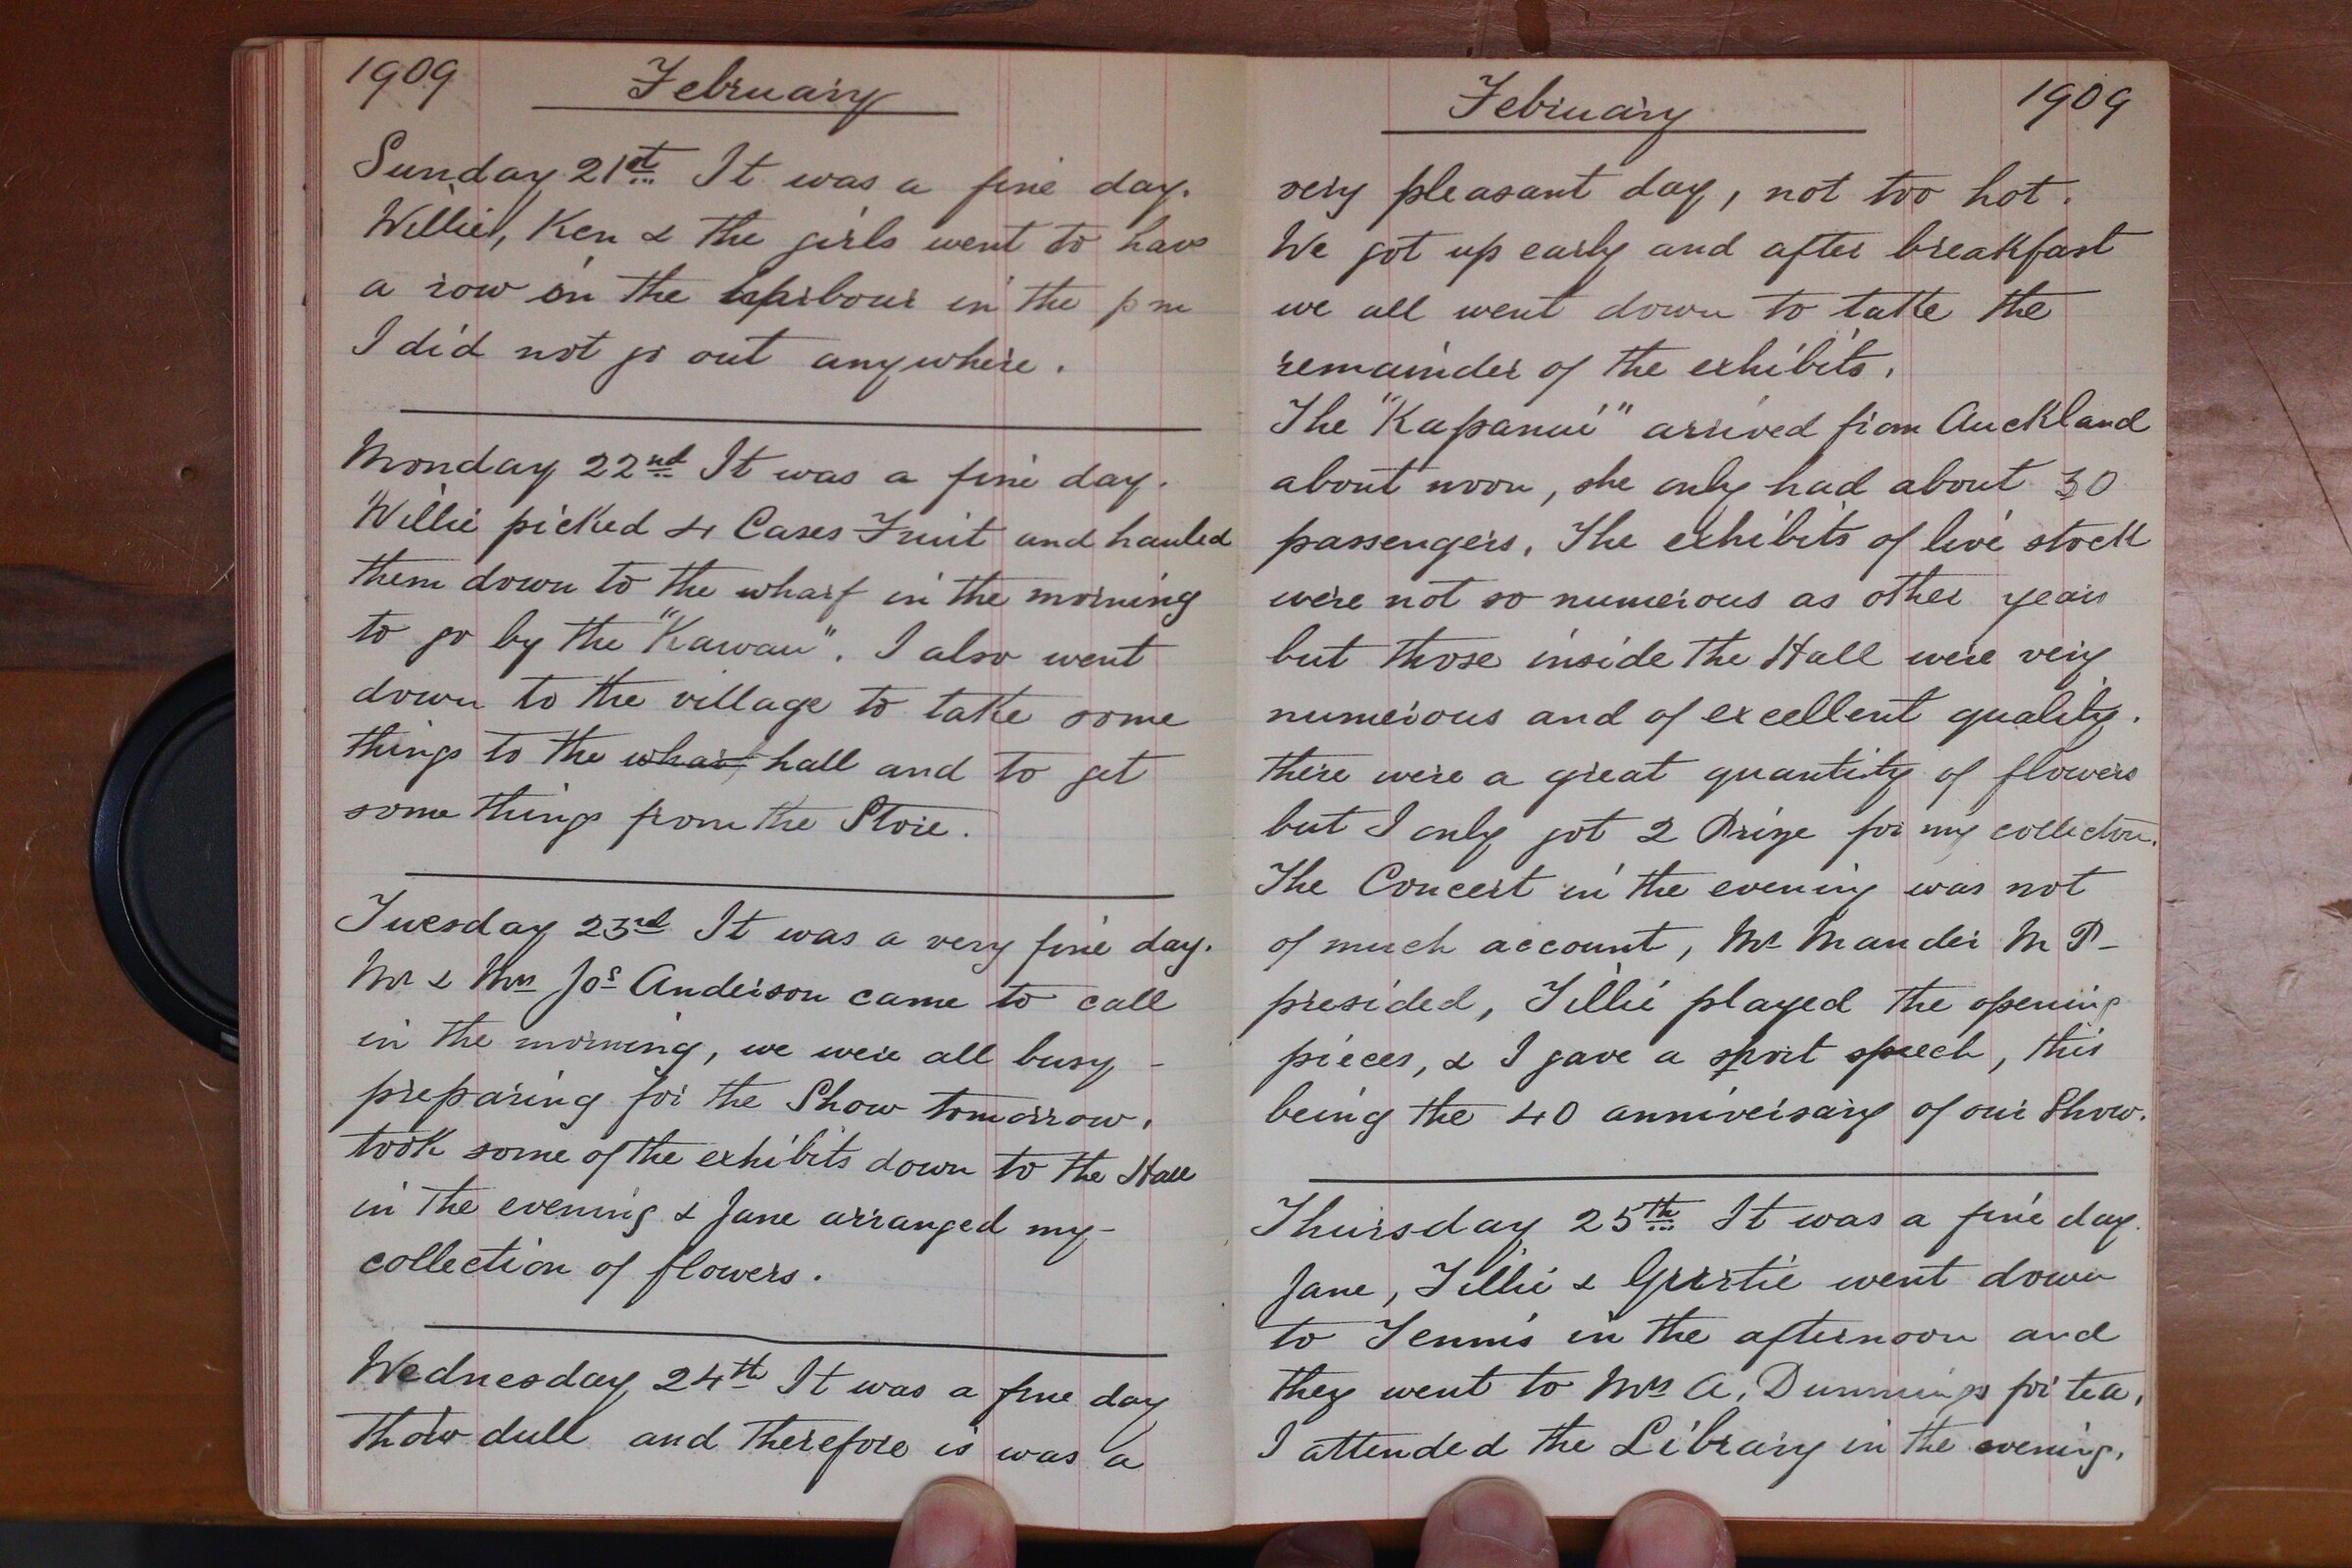 1909 February
Sunday 21st It was a fine day.
Willie, Ken & the girls went to have
a row in the harbour in the pm
I did not go out anywhere.
Monday 22nd It was a fine day.
Willie picked 4 Cases Fruit and hauled
them down to the wharf in the morning
to go by the "Kawau". I also went
down to the village to take some
things to the wharf hall and to get
some things from the Store.
Tuesday 23rd It was a very fine day.
Mr & Mrs Jos Anderson came to call
in the morning, we were all busy -
preparing for the Show tomorrow.
took some of the exhibits down to the Hall
in the evening & Jane arranged my -
collection of flowers.
Wednesday 24th It was a fine day
tho dull and therefore is was a
February 1909
very pleasant day, not too hot.
We got up early and after breakfast
we all went down to take the
remainder of the exhibits.
The "Kapanui" arrived from Auckland
about noon, she only had about 30
passengers. The exhibits of live stock
were not so numerous as other years
but those inside the Hall were very
numerous and of excellent quality.
there were a great quantity of flowers
but I only got 2 Prize for my collection.
The Concert in the evening was not
of much account, Mr Mander M P -
presided, Tillie played the opening
pieces, & I gave a short speech, this
being the 40 anniversary of our Show.
Thursday 25th It was a fine day.
Jane, Tillie & Gertie went down
to Tennis in the afternoon and
they went to Mrs A. Dunnings for tea.
I attended the Library in the evening.